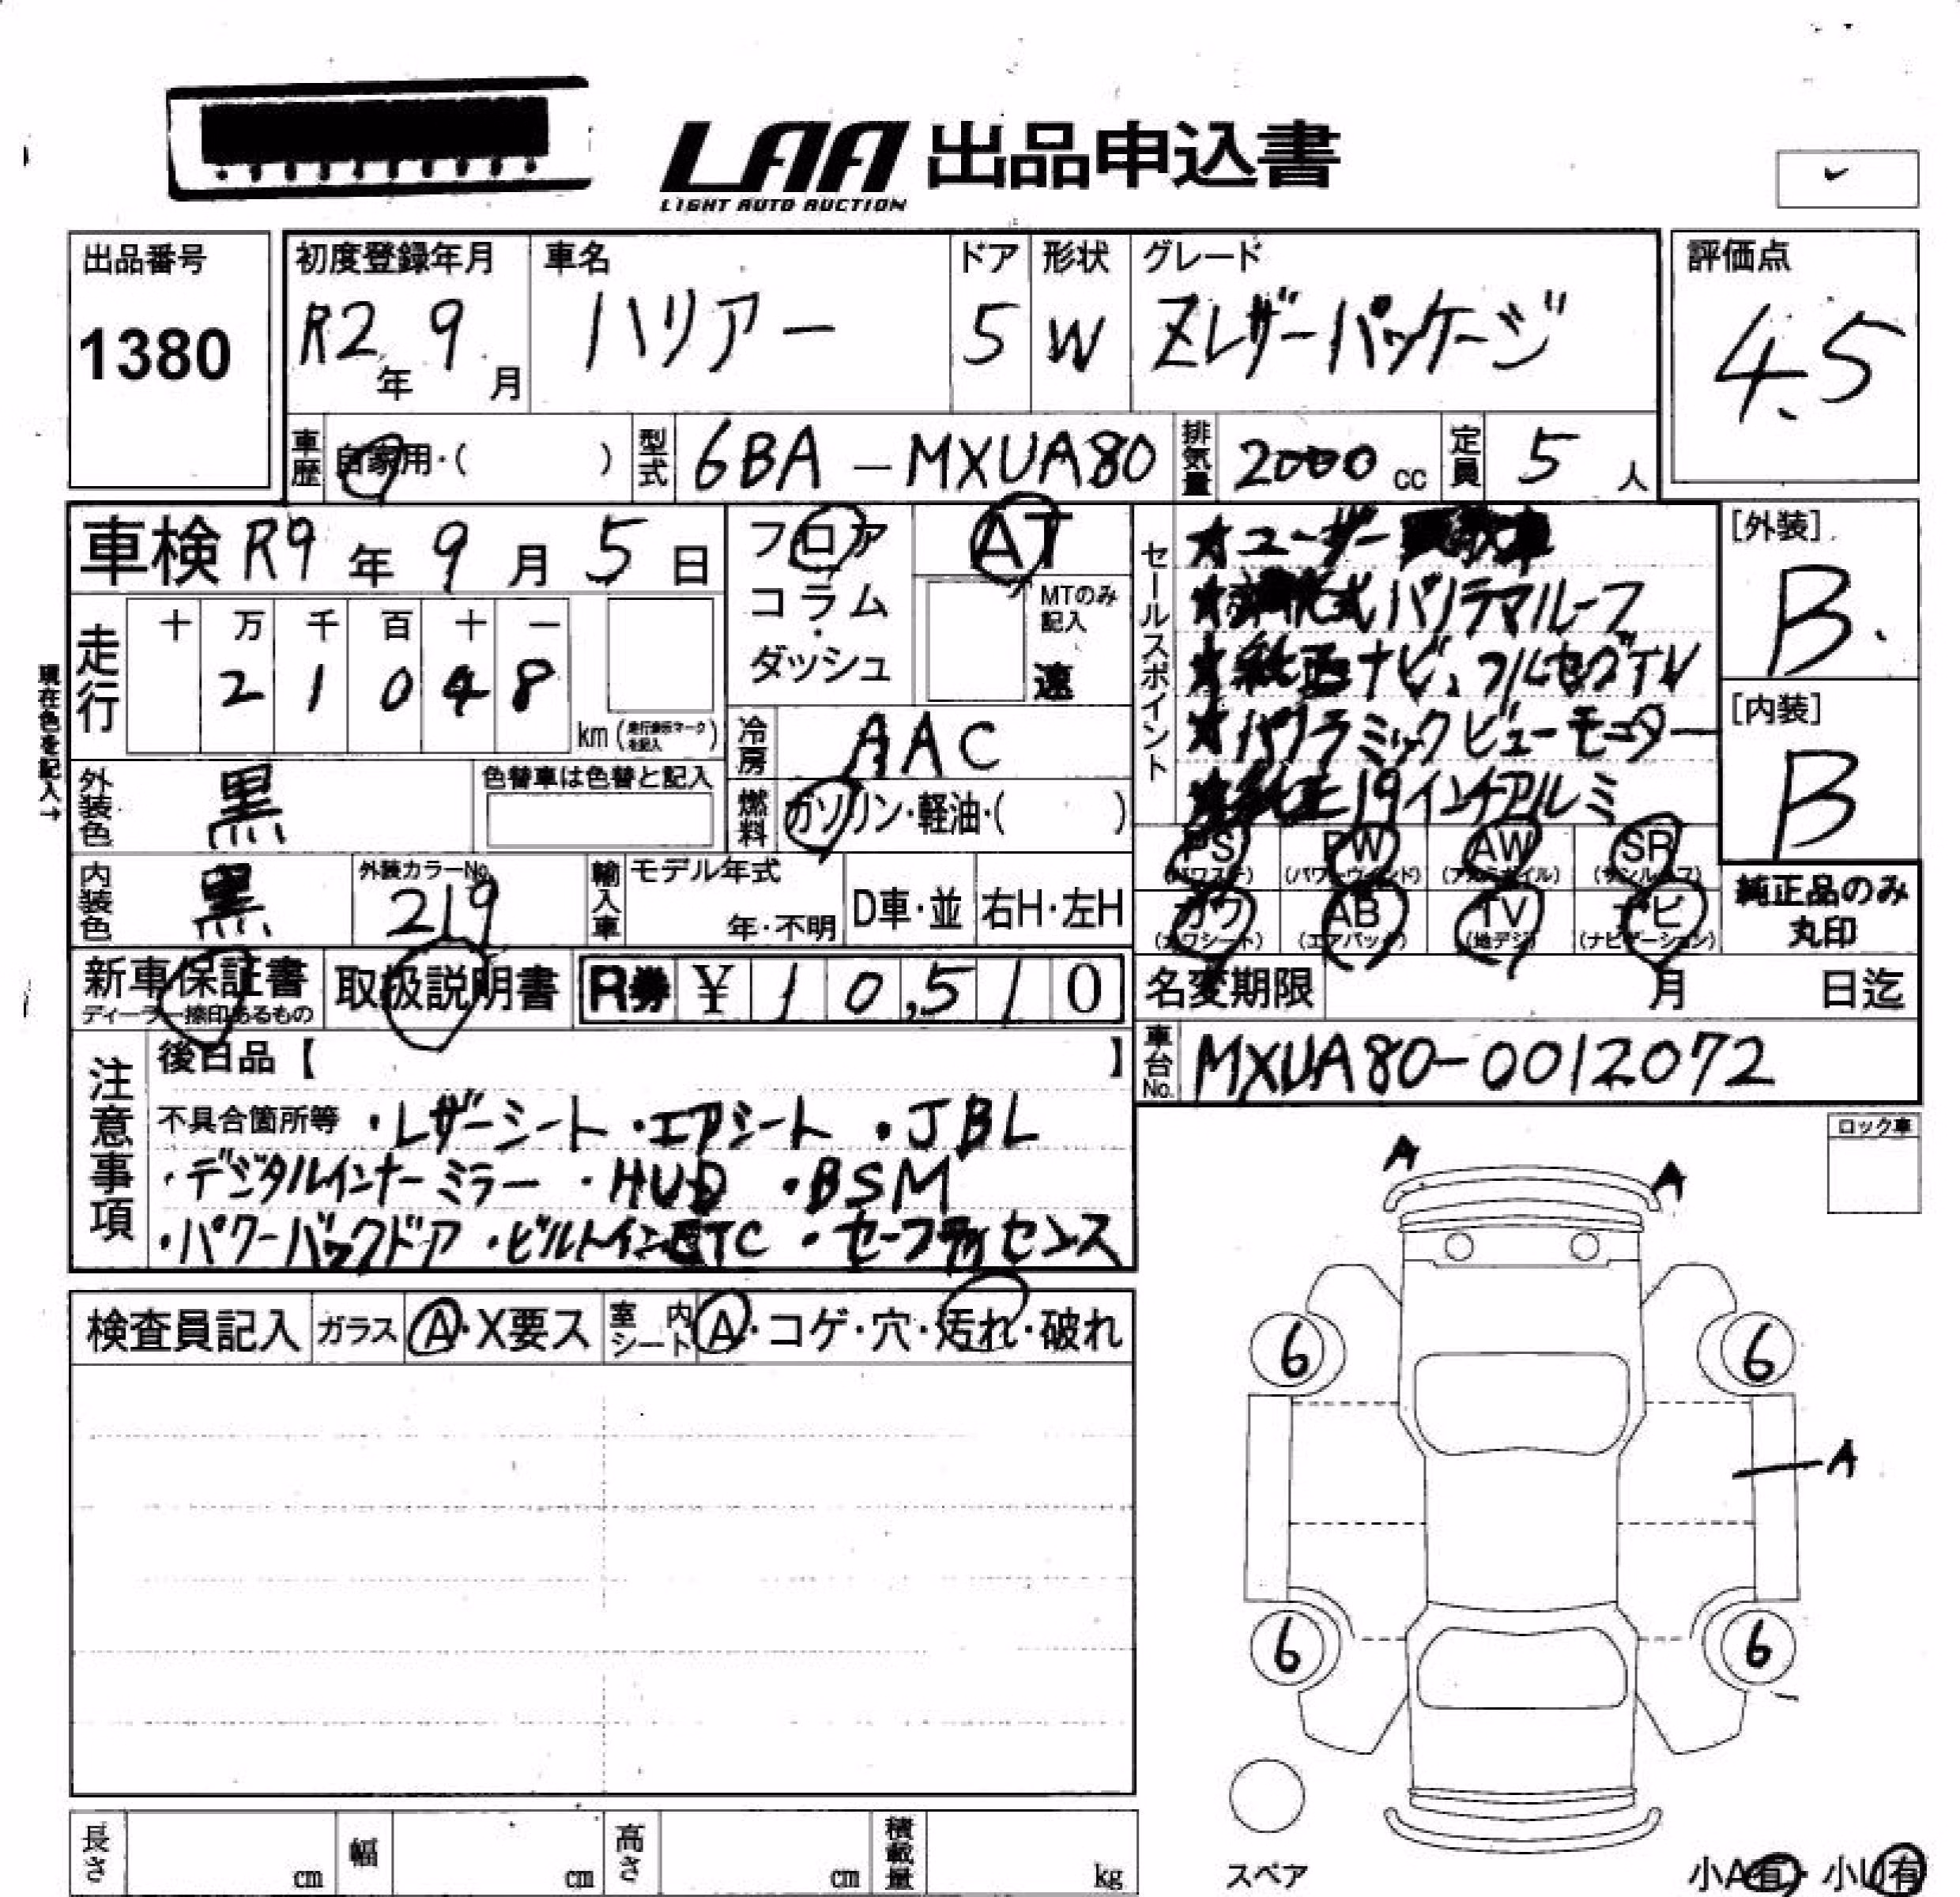 LAA 出品申込書
LIGHT AUTO AUCTION
出品番号
1380
初度登録年月
R2年 9月
車名
ハリアー
ドア
5
形状
W
グレード
Zレザーパッケージ
評価点
4.5
車歴 自家用・( )
型式 6BA-MXUA80
排気量 2000 cc
定員 5人
車検 R9年 9月 5日
走行
十 万 千 百 十 一
2 1 0 4 8
km (走行表示マークを記入)
現在色を記入→
外装色 黒
色替車は色替と記入
内装色 黒
外装カラーNo.
219
フロア
コラム
・
ダッシュ
AT
MTのみ
記入
速
冷房 AAC
燃料 ガソリン・軽油・( )
輸入車 モデル年式
年・不明
D車・並 右H・左H
セールスポイント
★ユーザー
パノラマルーフ
★純正ナビ、フルセグTV
★パノラミックビューモニター
★純正19インチアルミ
[外装]
B
[内装]
B
PS PW AW SR
(パワステ) (パワーウィンド) (アルミホイル) (サンルーフ)
カワ AB TV ナビ
(カワシート) (エアバック) (地デジ) (ナビゲーション)
純正品のみ
丸印
新車保証書
ディーラー捺印あるもの
取扱説明書
R券 ¥ 10,510
名変期限 月 日迄
車台No. MXUA80-0012072
注意事項
後日品【 】
不具合箇所等 ・レザーシート ・エアシート ・JBL
・デジタルインナーミラー ・HUD ・BSM
・パワーバックドア ・ビルトインETC ・セーフティセンス
ロック車
検査員記入 ガラス A・X要ス 室内シート A・コゲ・穴・汚れ・破れ
A
A
6 6
A
6 6
スペア
小A有・小U有
長さ cm 幅 cm 高さ cm 積載量 kg